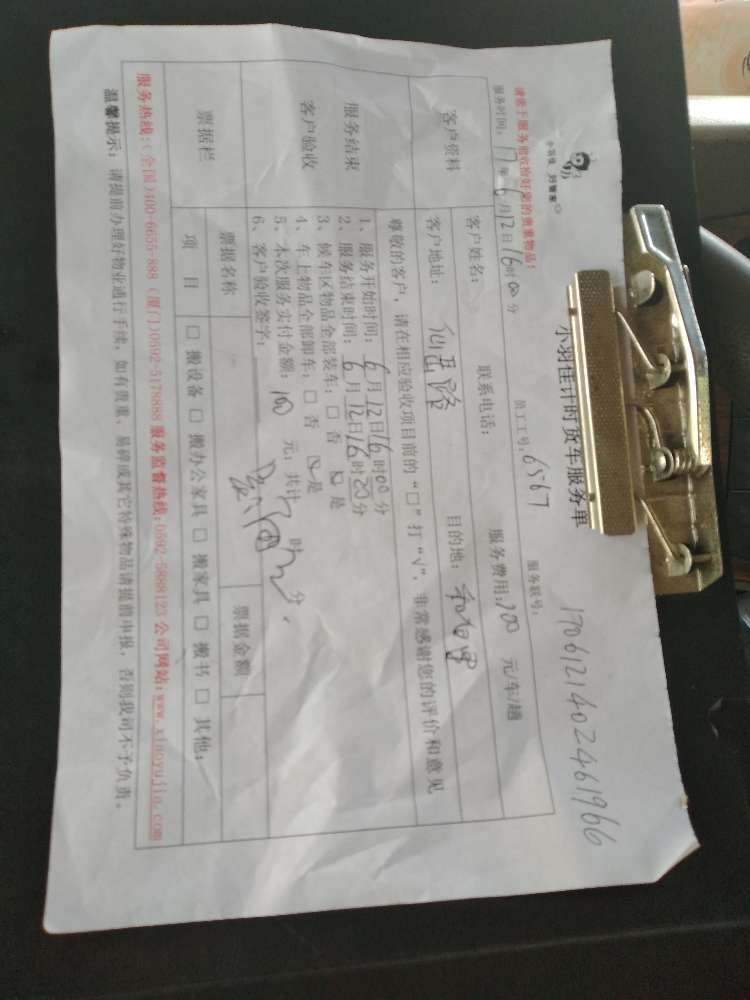 小羽佳 好管家
小羽佳计时货车服务单
服务联号: 170612140246196６
请您于服务前收拾好您的贵重物品!
服务时间: 17年6月12日16时00分 员工工号: 6567 服务费用: 100 元/车/趟
客户资料
客户姓名: 联系电话: 目的地:
客户地址: 仙岳路
尊敬的客户, 请在相应验收项目前的 “□” 打 “√”, 非常感谢您的评价和意见
服务结束
客户验收
1、服务开始时间: 6月12日16时00分
2、服务结束时间: 6月12日16时20分
3、候车区物品全部装车: □ 否 ☑ 是
4、车上物品全部卸车: □ 否 ☑ 是
5、本次服务实付金额: 100 元; 共计 时 分
6、客户验收签字:
票据栏
票据名称 票据金额
项 目 □ 搬设备 □ 搬办公家具 □ 搬家具 □ 搬书 □ 其他:
服务热线:(全国)400-6655-888 (厦门)0592-5178888 服务监督热线:0592-5888123 公司网站:www.xiaoyujia.com
温馨提示: 请提前办理好物业通行手续, 如有贵重、易碎或其它特殊物品请提前申报, 否则我司不予负责。